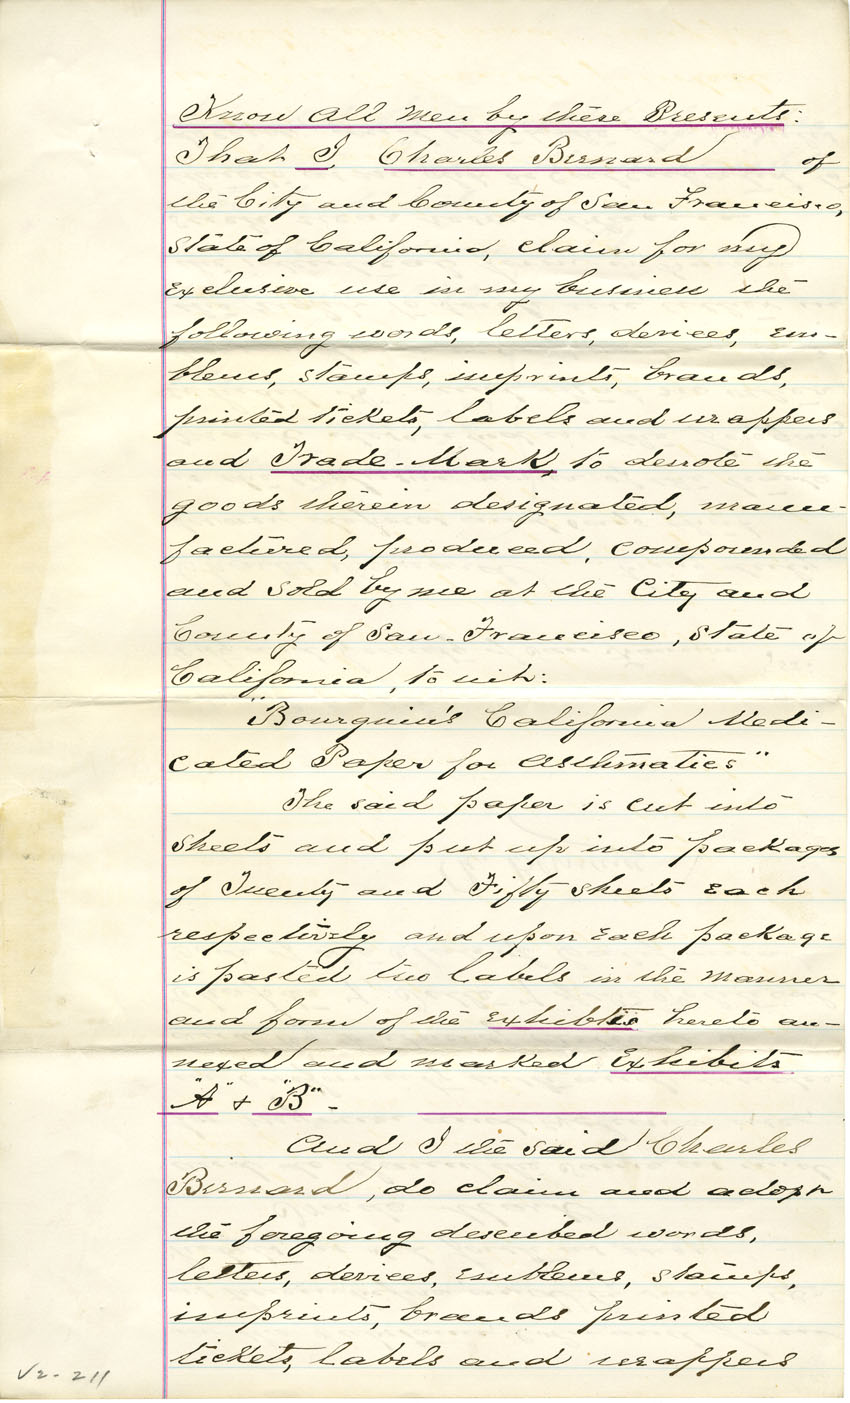 Know all Men by these Presents:
That I, Charles Bernard of
the City and County of San Francisco,
State of California, claim for my
exclusive use in my business the
following words, letters, devices, em-
blems, stamps, imprints, brands,
printed tickets, labels and wrappers
and Trade-Mark, to denote the
goods therein designated, manu-
factured, produced, compounded
and sold by me at the City and
County of San-Francisco, State of
California, to wit:
"Bourguin's California Medi-
cated Paper for Asthmatics"
The said paper is cut into
sheets and put up into packages
of Twenty and Fifty sheets each
respectively and upon each package
is pasted two labels in the manner
and form of the exhibits hereto an-
nexed and marked Exhibits
"A" & "B" -
And I the said Charles
Bernard, do claim and adopt
the foregoing described words,
letters, devices, emblems, stamps,
imprints, brands printed
tickets, labels and wrappers
V2-211